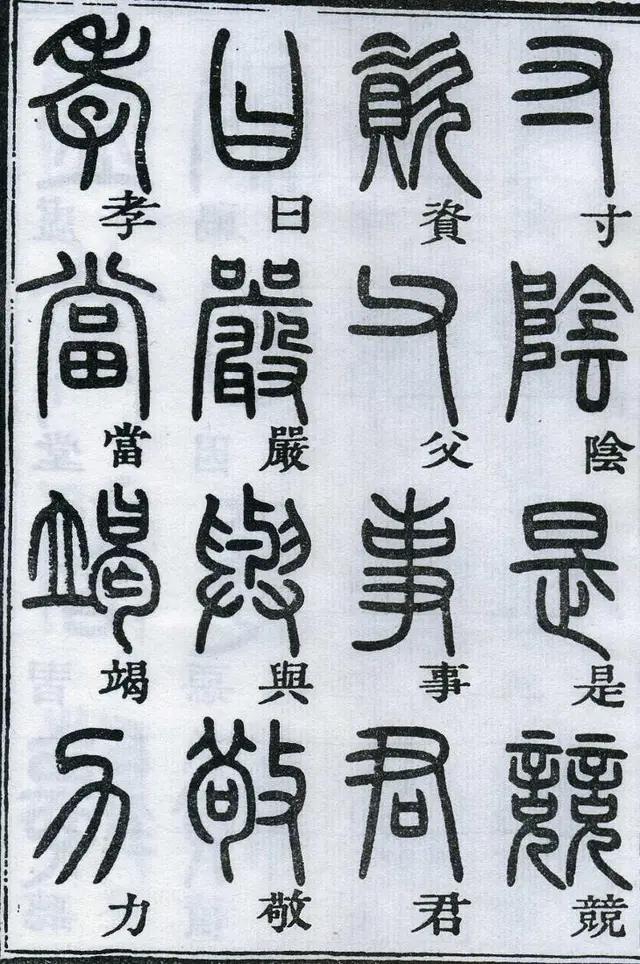 寸陰是競
資父事君
曰嚴與敬
孝當竭力